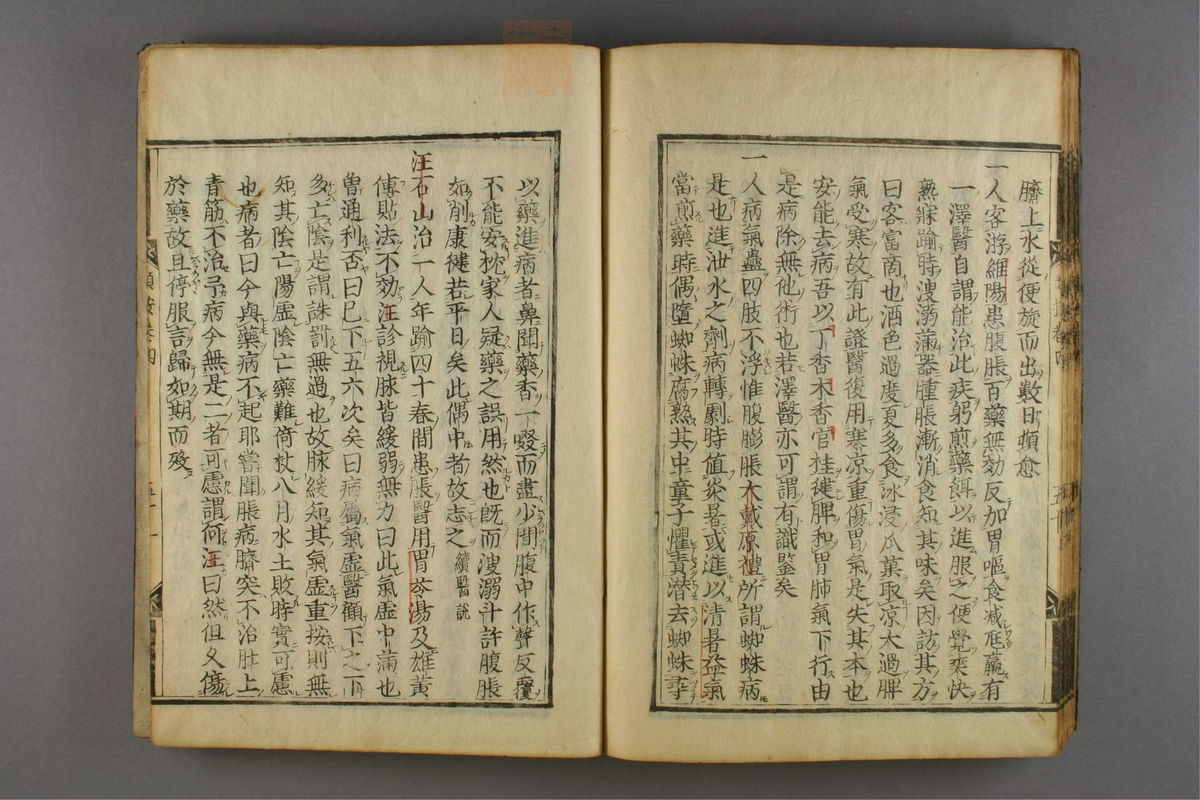 臍上水從便旋而出數日頓愈
一人客游維陽患腹脹百藥無効反加胃嘔食減尫羸有
一澤醫自謂能治此疾躬煎藥餌以進服之便覺爽快
熟寐踰時溲溺滿器腫脹漸消食知其味矣因訪其方
曰客富商也酒色過度夏多食冰浸瓜菓取凉太過脾
氣受寒故有此證醫復用寒凉重傷胃氣是失其本也
安能去病吾以丁香木香官桂健脾和胃肺氣下行由
是病除無他術也若澤醫亦可謂有識鑒矣
一人病氣蠱四肢不浮惟腹膨脹大戴原禮所謂蜘蛛病
是也進泄水之劑病轉劇時值炎暑或進以清暑益氣
當煎藥時偶墮蜘蛛腐熟其中童子懼責潜去蜘蛛尋
以藥進病者鼻聞藥香一啜而盡少間腹中作聲反覆
不能安枕家人疑藥之誤用然也既而溲溺斗許腹脹
如削康健若平日矣此偶中者故志之 續醫說
汪石山治一人年踰四十春間患脹醫用胃苓湯及雄黃
傅貼法不効汪診視脉皆緩弱無力曰此氣虛中滿也
曾通利否曰已下五六次矣曰病屬氣虛醫顧下之下
多亡陰是謂誅罰無過也故脉緩知其氣虛重按則無
知其陰亡陽虛陰亡藥難倚杖八月水土敗時實可慮
也病者曰今與藥病不起耶嘗聞脹病臍突不治肚上
青筋不治予病今無是二者可慮謂何汪曰然但久傷
於藥故且停服言歸如期而殁